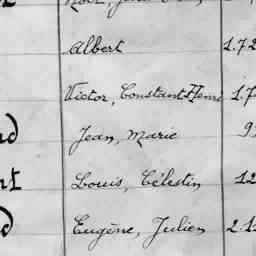 Albert 1.72
Victor, Constant Henri 1.7
nd Jean, Marie 9
nt Louis, Célestin 12
d Eugène, Julien 2.1